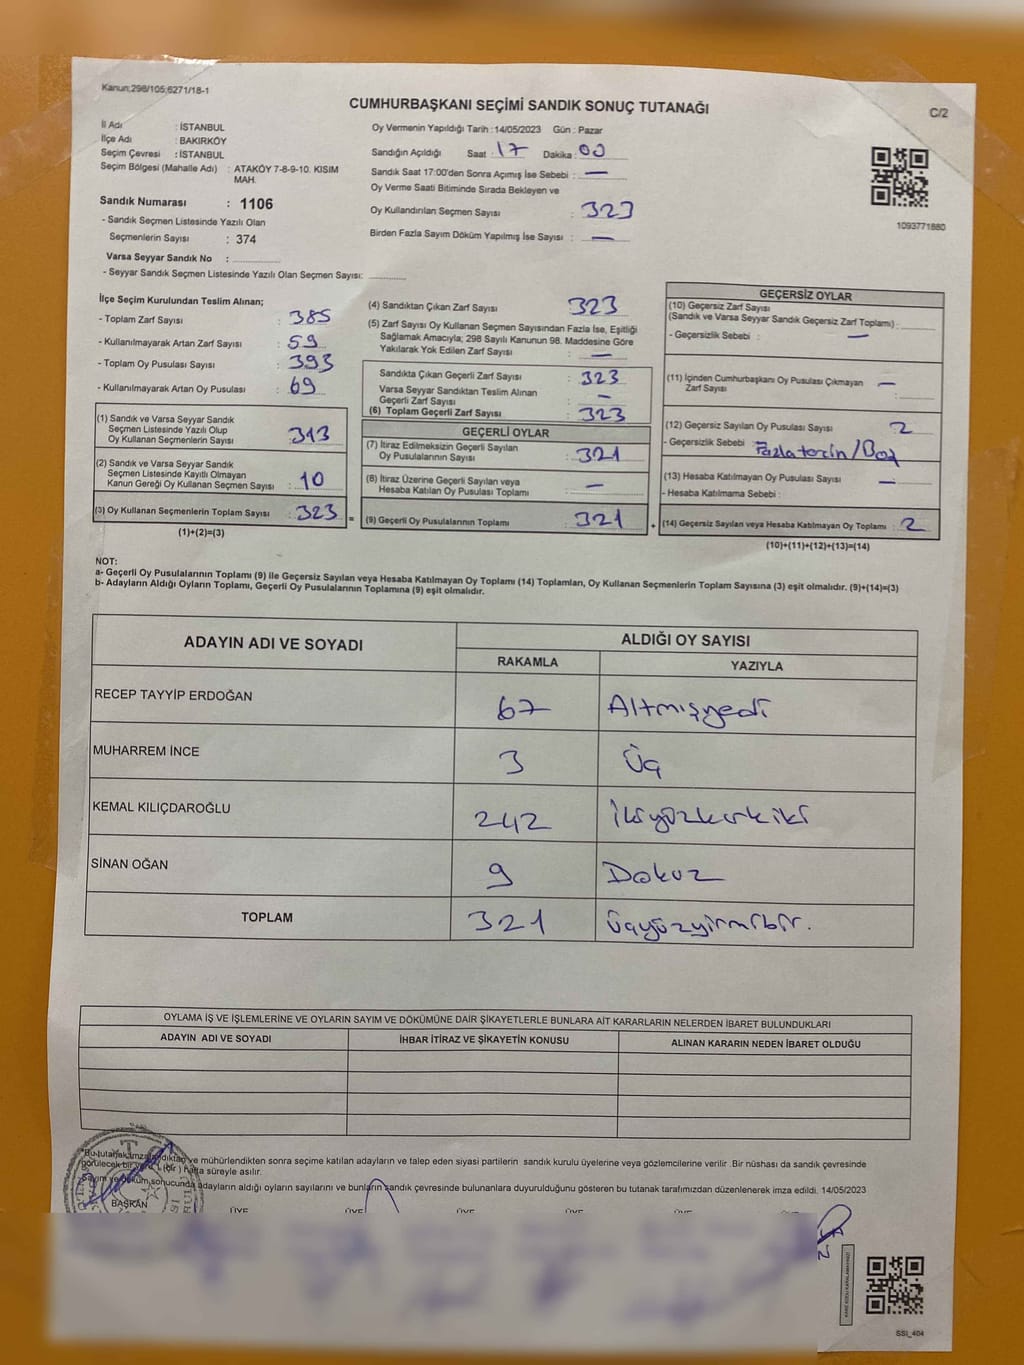 Kanun;298/105;6271/18-1
CUMHURBAŞKANI SEÇİMİ SANDIK SONUÇ TUTANAĞI
C/2
İl Adı : İSTANBUL
İlçe Adı : BAKIRKÖY
Seçim Çevresi : İSTANBUL
Seçim Bölgesi (Mahalle Adı) : ATAKÖY 7-8-9-10. KISIM
MAH.
Sandık Numarası : 1106
- Sandık Seçmen Listesinde Yazılı Olan
Seçmenlerin Sayısı : 374
Varsa Seyyar Sandık No :
- Seyyar Sandık Seçmen Listesinde Yazılı Olan Seçmen Sayısı:
Oy Vermenin Yapıldığı Tarih :14/05/2023 Gün : Pazar
Sandığın Açıldığı Saat : 17 Dakika : 00
Sandık Saat 17:00'den Sonra Açımış İse Sebebi : —
Oy Verme Saati Bitiminde Sırada Bekleyen ve
Oy Kullandırılan Seçmen Sayısı : 323
Birden Fazla Sayım Döküm Yapılmış İse Sayısı : —
1093771880
İlçe Seçim Kurulundan Teslim Alınan;
- Toplam Zarf Sayısı : 385
- Kullanılmayarak Artan Zarf Sayısı : 59
- Toplam Oy Pusulası Sayısı : 393
- Kullanılmayarak Artan Oy Pusulası : 69
(1) Sandık ve Varsa Seyyar Sandık
Seçmen Listesinde Yazılı Olup
Oy Kullanan Seçmenlerin Sayısı : 313
(2) Sandık ve Varsa Seyyar Sandık
Seçmen Listesinde Kayıtlı Olmayan
Kanun Gereği Oy Kullanan Seçmen Sayısı : 10
(3) Oy Kullanan Seçmenlerin Toplam Sayısı : 323
(1)+(2)=(3)
(4) Sandıktan Çıkan Zarf Sayısı 323
(5) Zarf Sayısı Oy Kullanan Seçmen Sayısından Fazla İse, Eşitliği
Sağlamak Amacıyla; 298 Sayılı Kanunun 98. Maddesine Göre
Yakılarak Yok Edilen Zarf Sayısı : —
Sandıkta Çıkan Geçerli Zarf Sayısı : 323
Varsa Seyyar Sandıktan Teslim Alınan
Geçerli Zarf Sayısı : —
(6) Toplam Geçerli Zarf Sayısı : 323
GEÇERLİ OYLAR
(7) İtiraz Edilmeksizin Geçerli Sayılan
Oy Pusulalarının Sayısı : 321
(8) İtiraz Üzerine Geçerli Sayılan veya
Hesaba Katılan Oy Pusulası Toplamı : —
= (9) Geçerli Oy Pusulalarının Toplamı : 321 +
GEÇERSİZ OYLAR
(10) Geçersiz Zarf Sayısı
(Sandık ve Varsa Seyyar Sandık Geçersiz Zarf Toplamı) :
- Geçersizlik Sebebi : —
(11) İçinden Cumhurbaşkanı Oy Pusulası Çıkmayan
Zarf Sayısı : —
(12) Geçersiz Sayılan Oy Pusulası Sayısı : 2
- Geçersizlik Sebebi :
(13) Hesaba Katılmayan Oy Pusulası Sayısı : —
- Hesaba Katılmama Sebebi :
(14) Geçersiz Sayılan veya Hesaba Katılmayan Oy Toplamı : 2
(10)+(11)+(12)+(13)=(14)
NOT:
a- Geçerli Oy Pusulalarının Toplamı (9) ile Geçersiz Sayılan veya Hesaba Katılmayan Oy Toplamı (14) Toplamları, Oy Kullanan Seçmenlerin Toplam Sayısına (3) eşit olmalıdır. (9)+(14)=(3)
b- Adayların Aldığı Oyların Toplamı, Geçerli Oy Pusulalarının Toplamına (9) eşit olmalıdır.
ADAYIN ADI VE SOYADI ALDIĞI OY SAYISI
RAKAMLA YAZIYLA
RECEP TAYYİP ERDOĞAN 67 Altmışyedi
MUHARREM İNCE 3 Üç
KEMAL KILIÇDAROĞLU 242 İkiyüzkırkiki
SİNAN OĞAN 9 Dokuz
TOPLAM 321 üçyüzyirmibir.
OYLAMA İŞ VE İŞLEMLERİNE VE OYLARIN SAYIM VE DÖKÜMÜNE DAİR ŞİKAYETLERLE BUNLARA AİT KARARLARIN NELERDEN İBARET BULUNDUKLARI
ADAYIN ADI VE SOYADI İHBAR İTİRAZ VE ŞİKAYETİN KONUSU ALINAN KARARIN NEDEN İBARET OLDUĞU
*Bu tutanak imzalandıktan ve mühürlendikten sonra seçime katılan adayların ve talep eden siyasi partilerin sandık kurulu üyelerine veya gözlemcilerine verilir .Bir nüshası da sandık çevresinde
görülecek bir yere 1 (bir ) hafta süreyle asılır.
Sayım ve döküm sonucunda adayların aldığı oyların sayılarını ve bunların sandık çevresinde bulunanlara duyurulduğunu gösteren bu tutanak tarafımızdan düzenlenerek imza edildi. 14/05/2023
BAŞKAN ÜYE ÜYE ÜYE ÜYE ÜYE
SSI_404